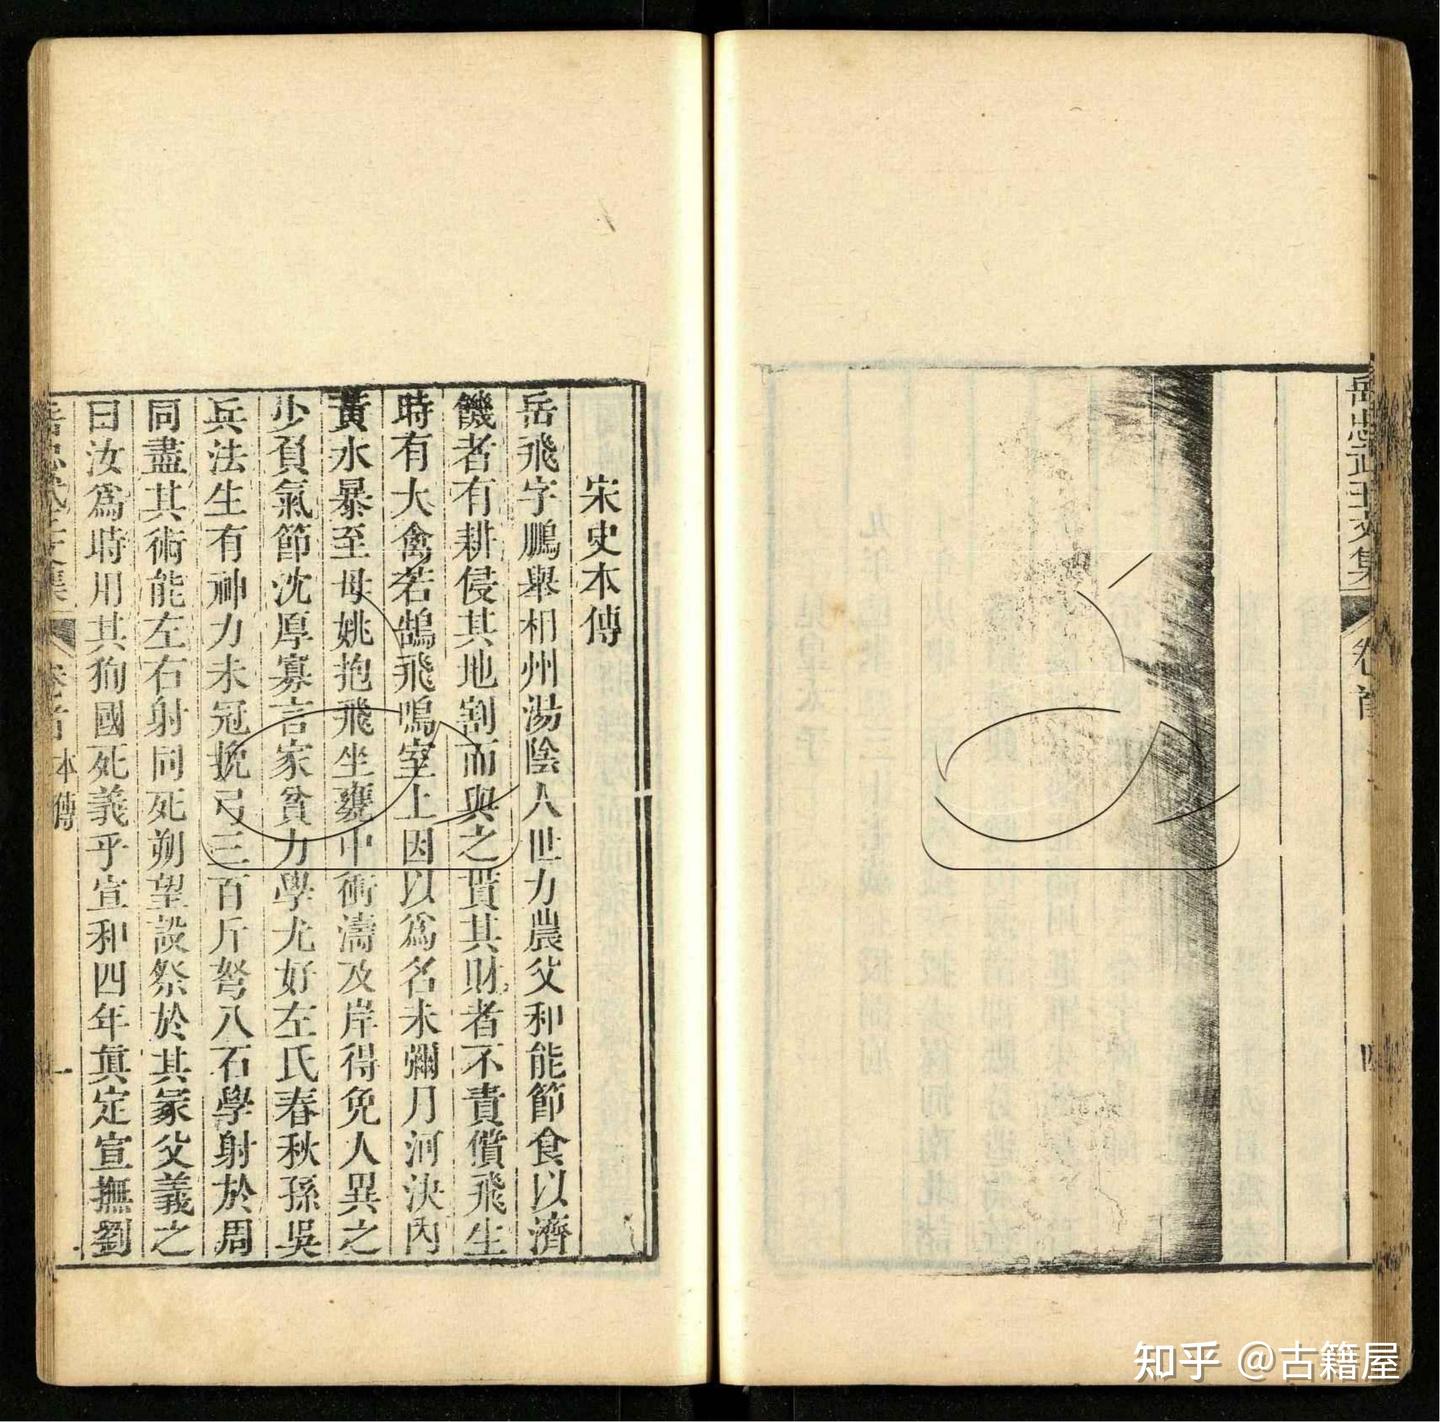 岳忠武王文集
卷首
四
宋史本傳
岳飛字鵬舉相州湯陰人世力農父和能節食以濟
饑者有耕侵其地割而與之貰其財者不責償飛生
時有大禽若鵠飛鳴室上因以爲名未彌月河決內
黃水暴至母姚抱飛坐甕中衝濤及岸得免人異之
少負氣節沈厚寡言家貧力學尤好左氏春秋孫吳
兵法生有神力未冠挽弓三百斤弩八石學射於周
同盡其術能左右射同死朔望設祭於其冢父義之
曰汝爲時用其狥國死義乎宣和四年眞定宣撫劉
岳忠武王文集
卷首
本傳
一
知乎 @古籍屋